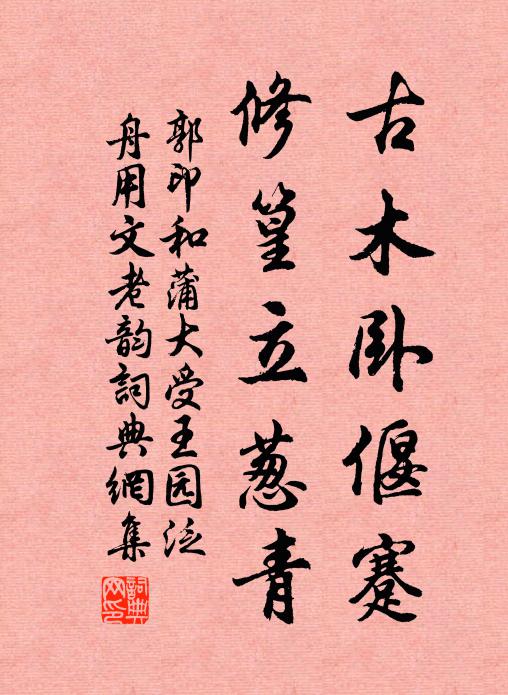 古木卧偃蹇
修篁立葱青
郭印和蒲大受王园泛
舟用文老韵詞典網集
詞典网印